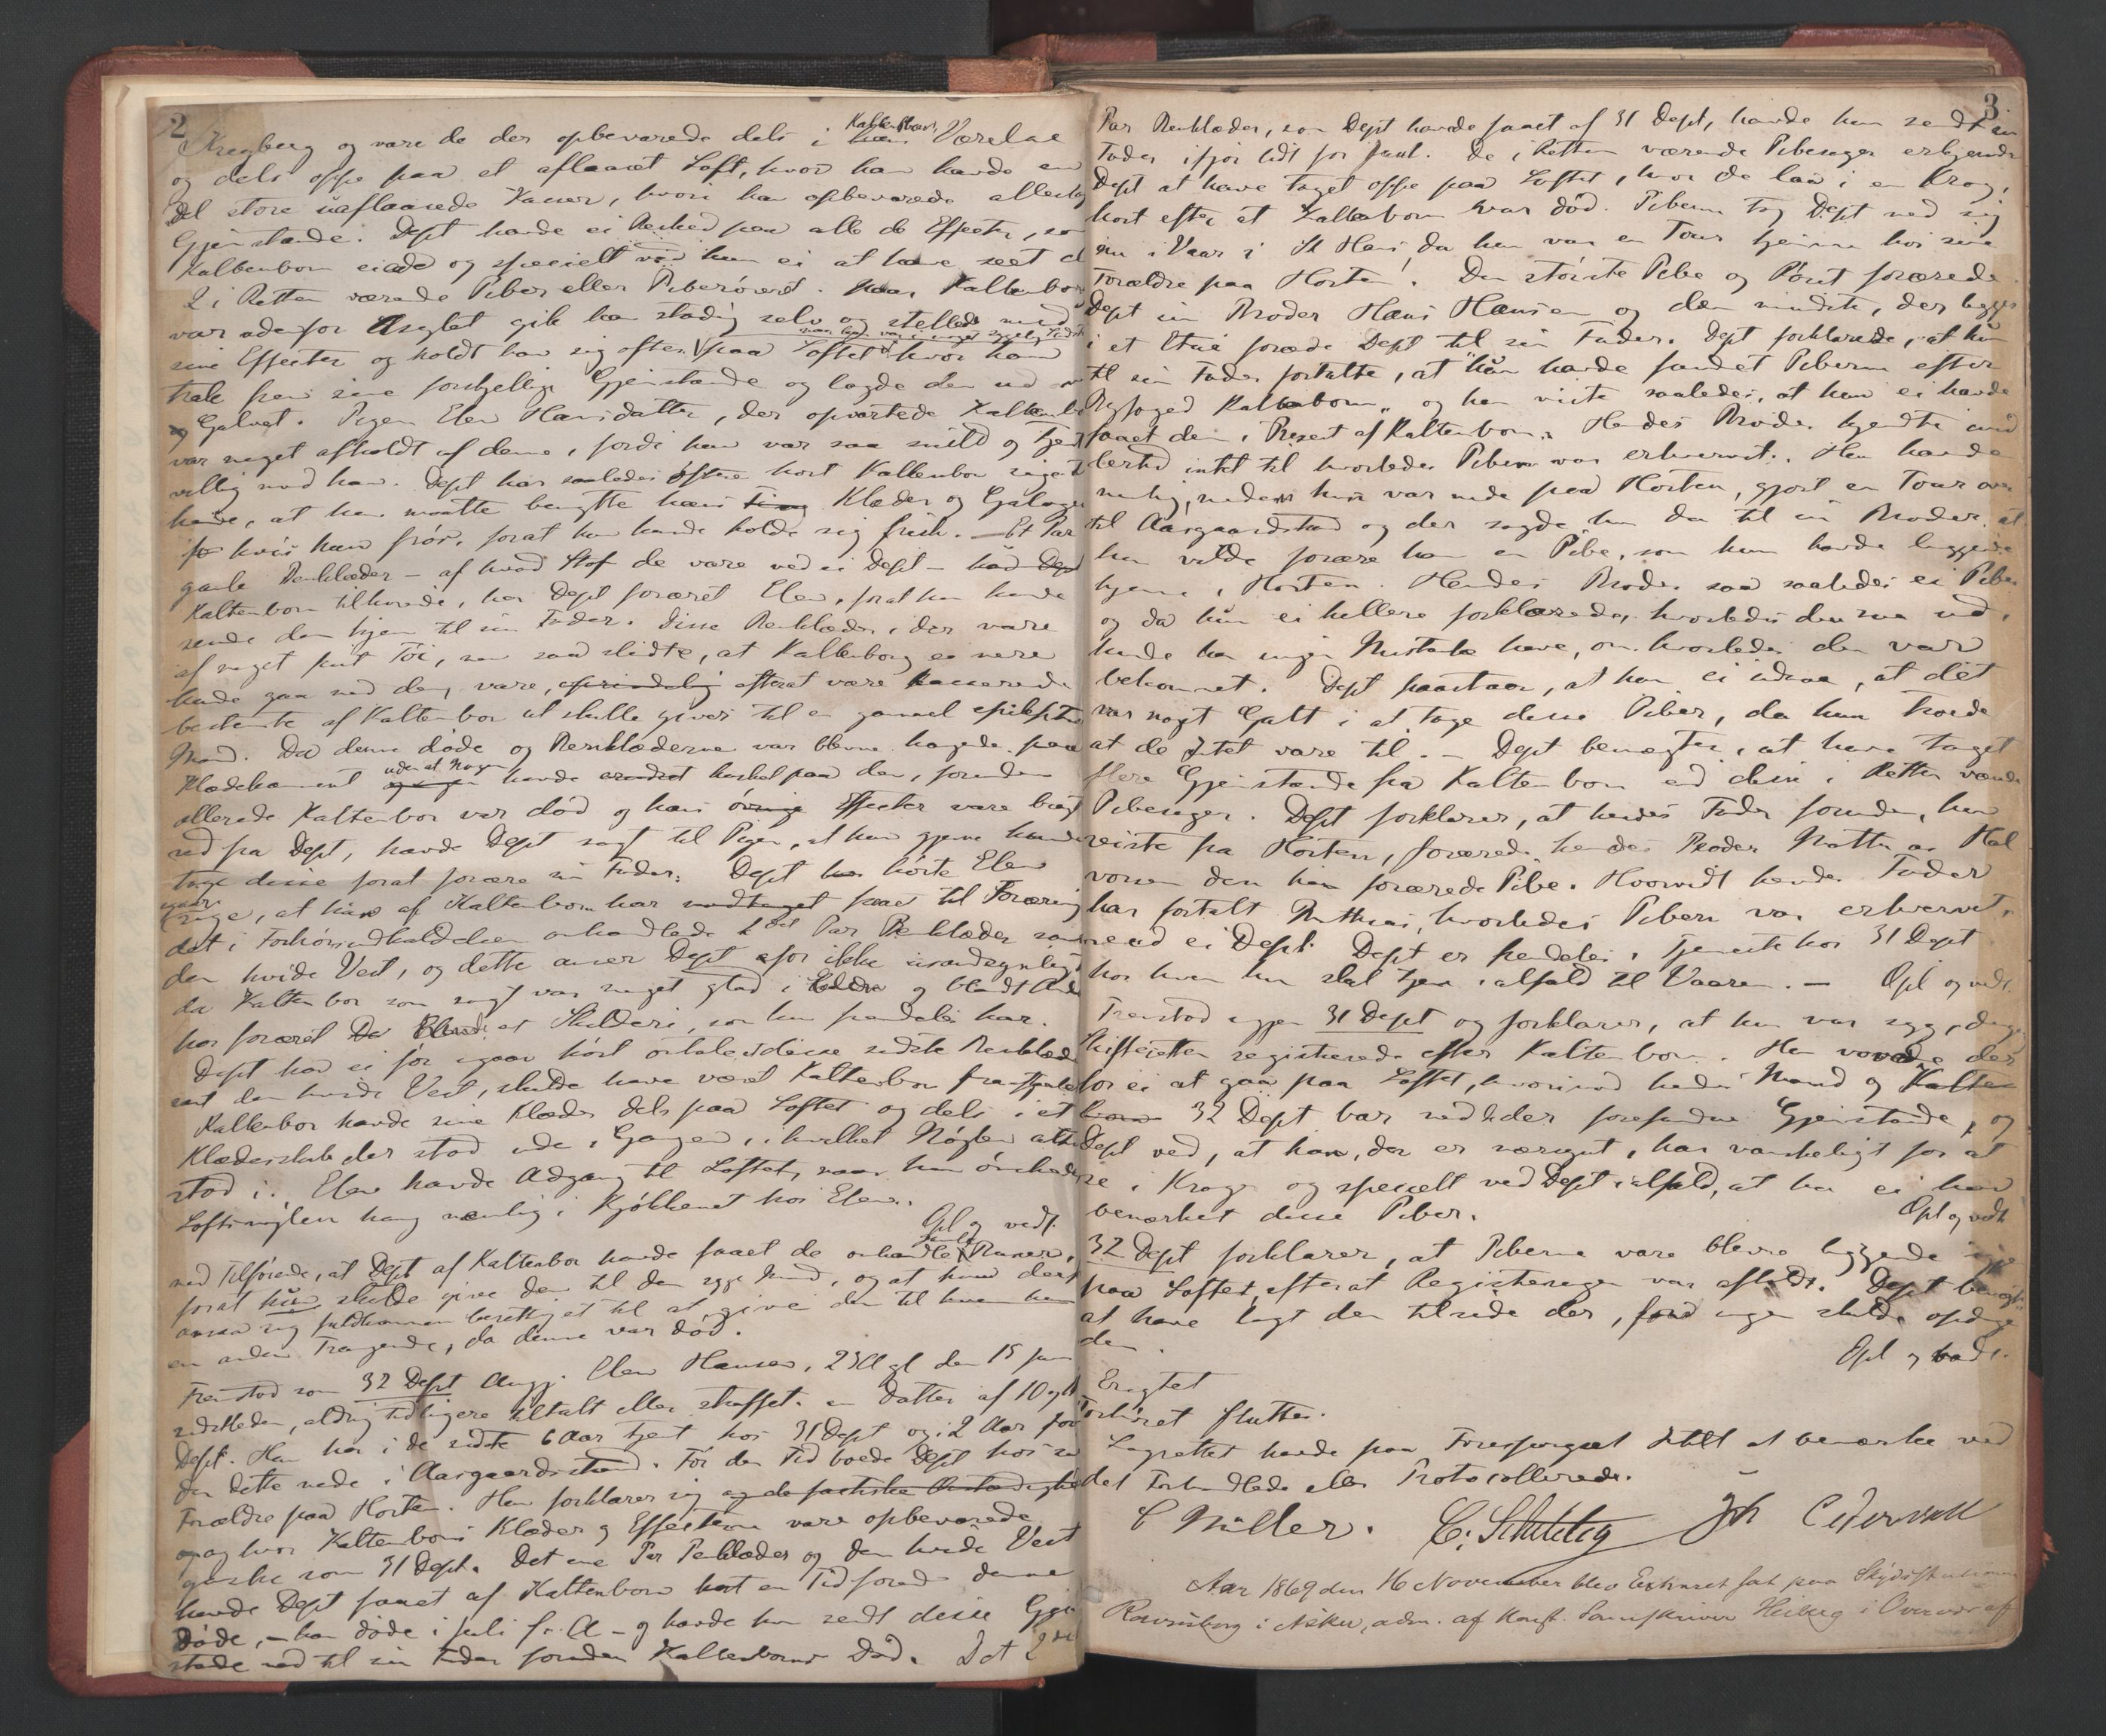 2
Kregberg og vare de der opbevarede dels i Kaltenborns Værelse
og dels oppe paa et aflaaset Loft, hvor han havde en
Del store uaflaasede Kasser, hvori han opbevarede allerlei
Gjenstande. Dept havde ei Reshed paa alle de Effecter, som
Kaltenborn eiede og specielt ved hun ei at have seet de
2 i Retten værende Piber eller Piberøret. Naar Kaltenborn
var udenfor Asylet gik han stadig selv og stellede med
sine Effecter og holdt han sig ofte paa Loftet hvor han
trak frem sine forskjellige Gjenstande og lagde dem ud
Gulvet. Pigen Elen Hansdatter, der opvartede Kaltenborn
var meget afholdt af denne, fordi hun var saa snild og tjenst
villig mod ham. Dept har saaledes oftere hørt Kaltenborn sige til
hende, at hun maatte benytte hans Klæder og Galoger
hvis hun frøs, forat hun kunde holde sig frisk. – Et Par
gamle Benklæder – af hvad Stof de vare ved ei Dept –
Kaltenborn tilhørende, har Dept foræret Elen, forat hun kunde
sende dem hjem til sin Fader. Disse Benklæder, der vare
af noget tyndt Tøi, var saa slidte, at Kaltenborn ei mere
kunde gaa med dem, vare, efterat være kasserede
bestemte af Kaltenborn at skulle gives til en gammel epileptisk
Mand. Da denne døde og Benklæderne var blevne hængende paa
Klædekammeret uden at Nogen havde ændset hverken paa dem, forinden
allerede Kaltenborn var død og hans øvrige Effecter vare bragt
ned fra Dept, havde Dept sagt til Pigen, at hun gjerne kunde
tage disse forat forære sin Fader. Dept hørte Elen
igaar sige, at hun af Kaltenborn har faaet til Foræring
det i Forhørsudholdelsen omhandlede 2det Par Benklæder samt
den hvide Vest, og dette anser Dept for ikke usandsynligt
da Kaltenborn som sagt var meget glad i Elen og blandt Andet
har foræret et Skilderi, som hun fremdeles har.
Dept har ei før igaar hørt omtale at disse sidste Benklæder
samt den hvide Vest, skulde have været Kaltenborn frastjaalet
Kaltenborn havde sine Klæder dels paa Loftet og dels i et
Klædeskab der stod ude i Gangen, i hvilket Nøglen altid
stod i. Elen havde Adgang til Loftet, naar hun ønskede
Loftsnøglen hang nemlig i Kjøkkenet hos Elen.
Opl og vedt.
med Tilføiende, at Dept af Kaltenborn havde faaet de omhandlede Buxer,
forat hun skulde give dem til den syge Mand, og at hun derfor
ansaa sig fuldkommen berettiget til at give dem til hvem hun
en anden Trængende, da denne var død.
Fremstod som 32 Dept Angj. Elen Hansen, 23 A gl den 15 Juni
sidstleden, aldrig tidligere tiltalt eller straffet. en Datter af 10 og 11
Dept. Hun har i de sidste 6 Aar tjent hos 31 Dept og i 2 Aar før
den dette nede i Aasgaardsstrand. Før den Tid boede Dept hos sine
Forældre paa Horten. Hun forklarer sig
og hvor Kaltenborns Klæder og Effecterne vare opbevarede
ganske som 31 Dept. Det ene Par Benklæder og den hvide Vest
havde Dept faaet af Kaltenborn kort en Tid forend denne
døde, – han døde i Juli f. A – og havde hun sendt disse Gjen
stande ned til sin Fader forinden Kaltenborns Død. Det 2det
3.
Par Benklæder, som Dept havde faaet af 31 Dept, havde hun sendt sin
Fader ifjor lidt før Juul. De i Retten værende Pibesager erkjender
Dept at have taget oppe paa Loftet, hvor de laa i en Krog,
kort efter at Kaltenborn var død. Piberne tog Dept med sig
nu i Vaar i St Hans, da hun var en Tour hjemme hos sine
Forældre paa Horten. Den største Pibe og Røret forærede
Dept sin Broder Hans Hansen og den mindste, der ligger
i et Etui forærede Dept til sin Fader. Dept forklarede, at hun
til sin Fader fortalte, at "hun havde fundet Piberne efter
Byfoged Kaltenborn" og han vidste saaledes, at hun ei havde
faaet dem i Present af Kaltenborn. Hendes Broder kjendte imid
lertid intet til hvorledes Piben var erhvervet. Hun havde
nemlig, medens hun var nede paa Horten, gjort en Tour over
til Aasgaardstrand og der sagde hun da til sin Broder at
hun vilde forære ham en Pibe, som hun havde liggende
hjemme i Horten. Hendes Broder saa saaledes ei Piben
og da hun ei hellere forklarede, hvorledes den saa ud,
kunde han ingen Mistanke have, om hvorledes den var
bekommet. Dept paastaar, at hun ei indsaa, at det
var noget Galt i at tage disse Piber, da hun troede
at de Intet vare til. – Dept benægter, at have taget
flere Gjenstande fra Kaltenborn end disse i Retten værende
Pibesager. Dept forklarer, at hendes Fader forinden, hun
reiste fra Horten, forærede hendes Broder Mathias Hal
vorsen den ham forærede Pibe. Hvorvidt hendes Fader
har fortalt Mathias, hvorledes Piben var erhvervet,
ved ei Dept. Dept er fremdeles i Tjeneste hos 31 Dept
hos hvem hun skal tjene ialfald til Vaaren. – Opl og vedt.
Fremstod igjen 31 Dept og forklarer, at hun var syg, da
Skifteretten registrerede efter Kaltenborn. Hun vovede der
for ei at gaa paa Loftet, hvorimod hendes Mand og
32 Dept bar ned de der forefundne Gjenstande, og
Dept ved, at han, der er nærsynet, har vanskeligt for at
se i Krogen og specielt ved Dept ialfald, at han ei har
bemærket disse Piber.
Opl og vedt
32 Dept forklarer, at Piberne vare blevne liggende igjen
paa Loftet, efterat Registreringen var afholdt. Dept benægter
at have lagt dem tilside der, forat ingen skulde opdage
dem.
Opl og vedt.
Eragtet
Forhøret sluttes.
Lagrettet havde paa Forespørgsel Intet at bemærke ved
det Forhandlede eller Protocollerede.
C Müller. C. Schilling Joh Cedervall
Aar 1869 den 16 November blev Extraret sat paa Skydsstationen
Ravnsborg i Asker, adm. af Konst. Sorenskriver Heiberg i Overvær af